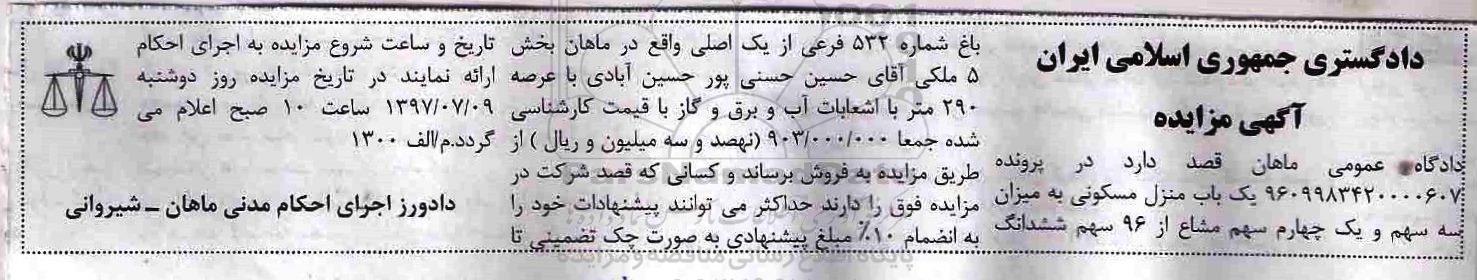 دادگستری جمهوری اسلامی ایران
آگهی مزایده
دادگاه عمومی ماهان قصد دارد در پرونده
۹۶۰۹۹۸۳۴۲۰۰۰۰۶۰۷ یک باب منزل مسکونی به میزان
سه سهم و یک چهارم سهم مشاع از ۹۶ سهم ششدانگ
باغ شماره ۵۳۲ فرعی از یک اصلی واقع در ماهان بخش
۵ ملکی آقای حسین حسنی پور حسین آبادی با عرصه
۲۹۰ متر با اشعابات آب و برق و گاز با قیمت کارشناسی
شده جمعا ۹۰۳/۰۰۰/۰۰۰ (نهصد و سه میلیون و ریال ) از
طریق مزایده به فروش برساند و کسانی که قصد شرکت در
مزایده فوق را دارند حداکثر می توانند پیشنهادات خود را
به انضمام ۱۰٪ مبلغ پیشنهادی به صورت چک تضمینی تا
تاریخ و ساعت شروع مزایده به اجرای احکام
ارائه نمایند در تاریخ مزایده روز دوشنبه
۱۳۹۷/۰۷/۰۹ ساعت ۱۰ صبح اعلام می
گردد.م/الف ۱۳۰۰
دادورز اجرای احکام مدنی ماهان ـ شیروانی
پایگاه اطلاع رسانی مناقصه و مزایده